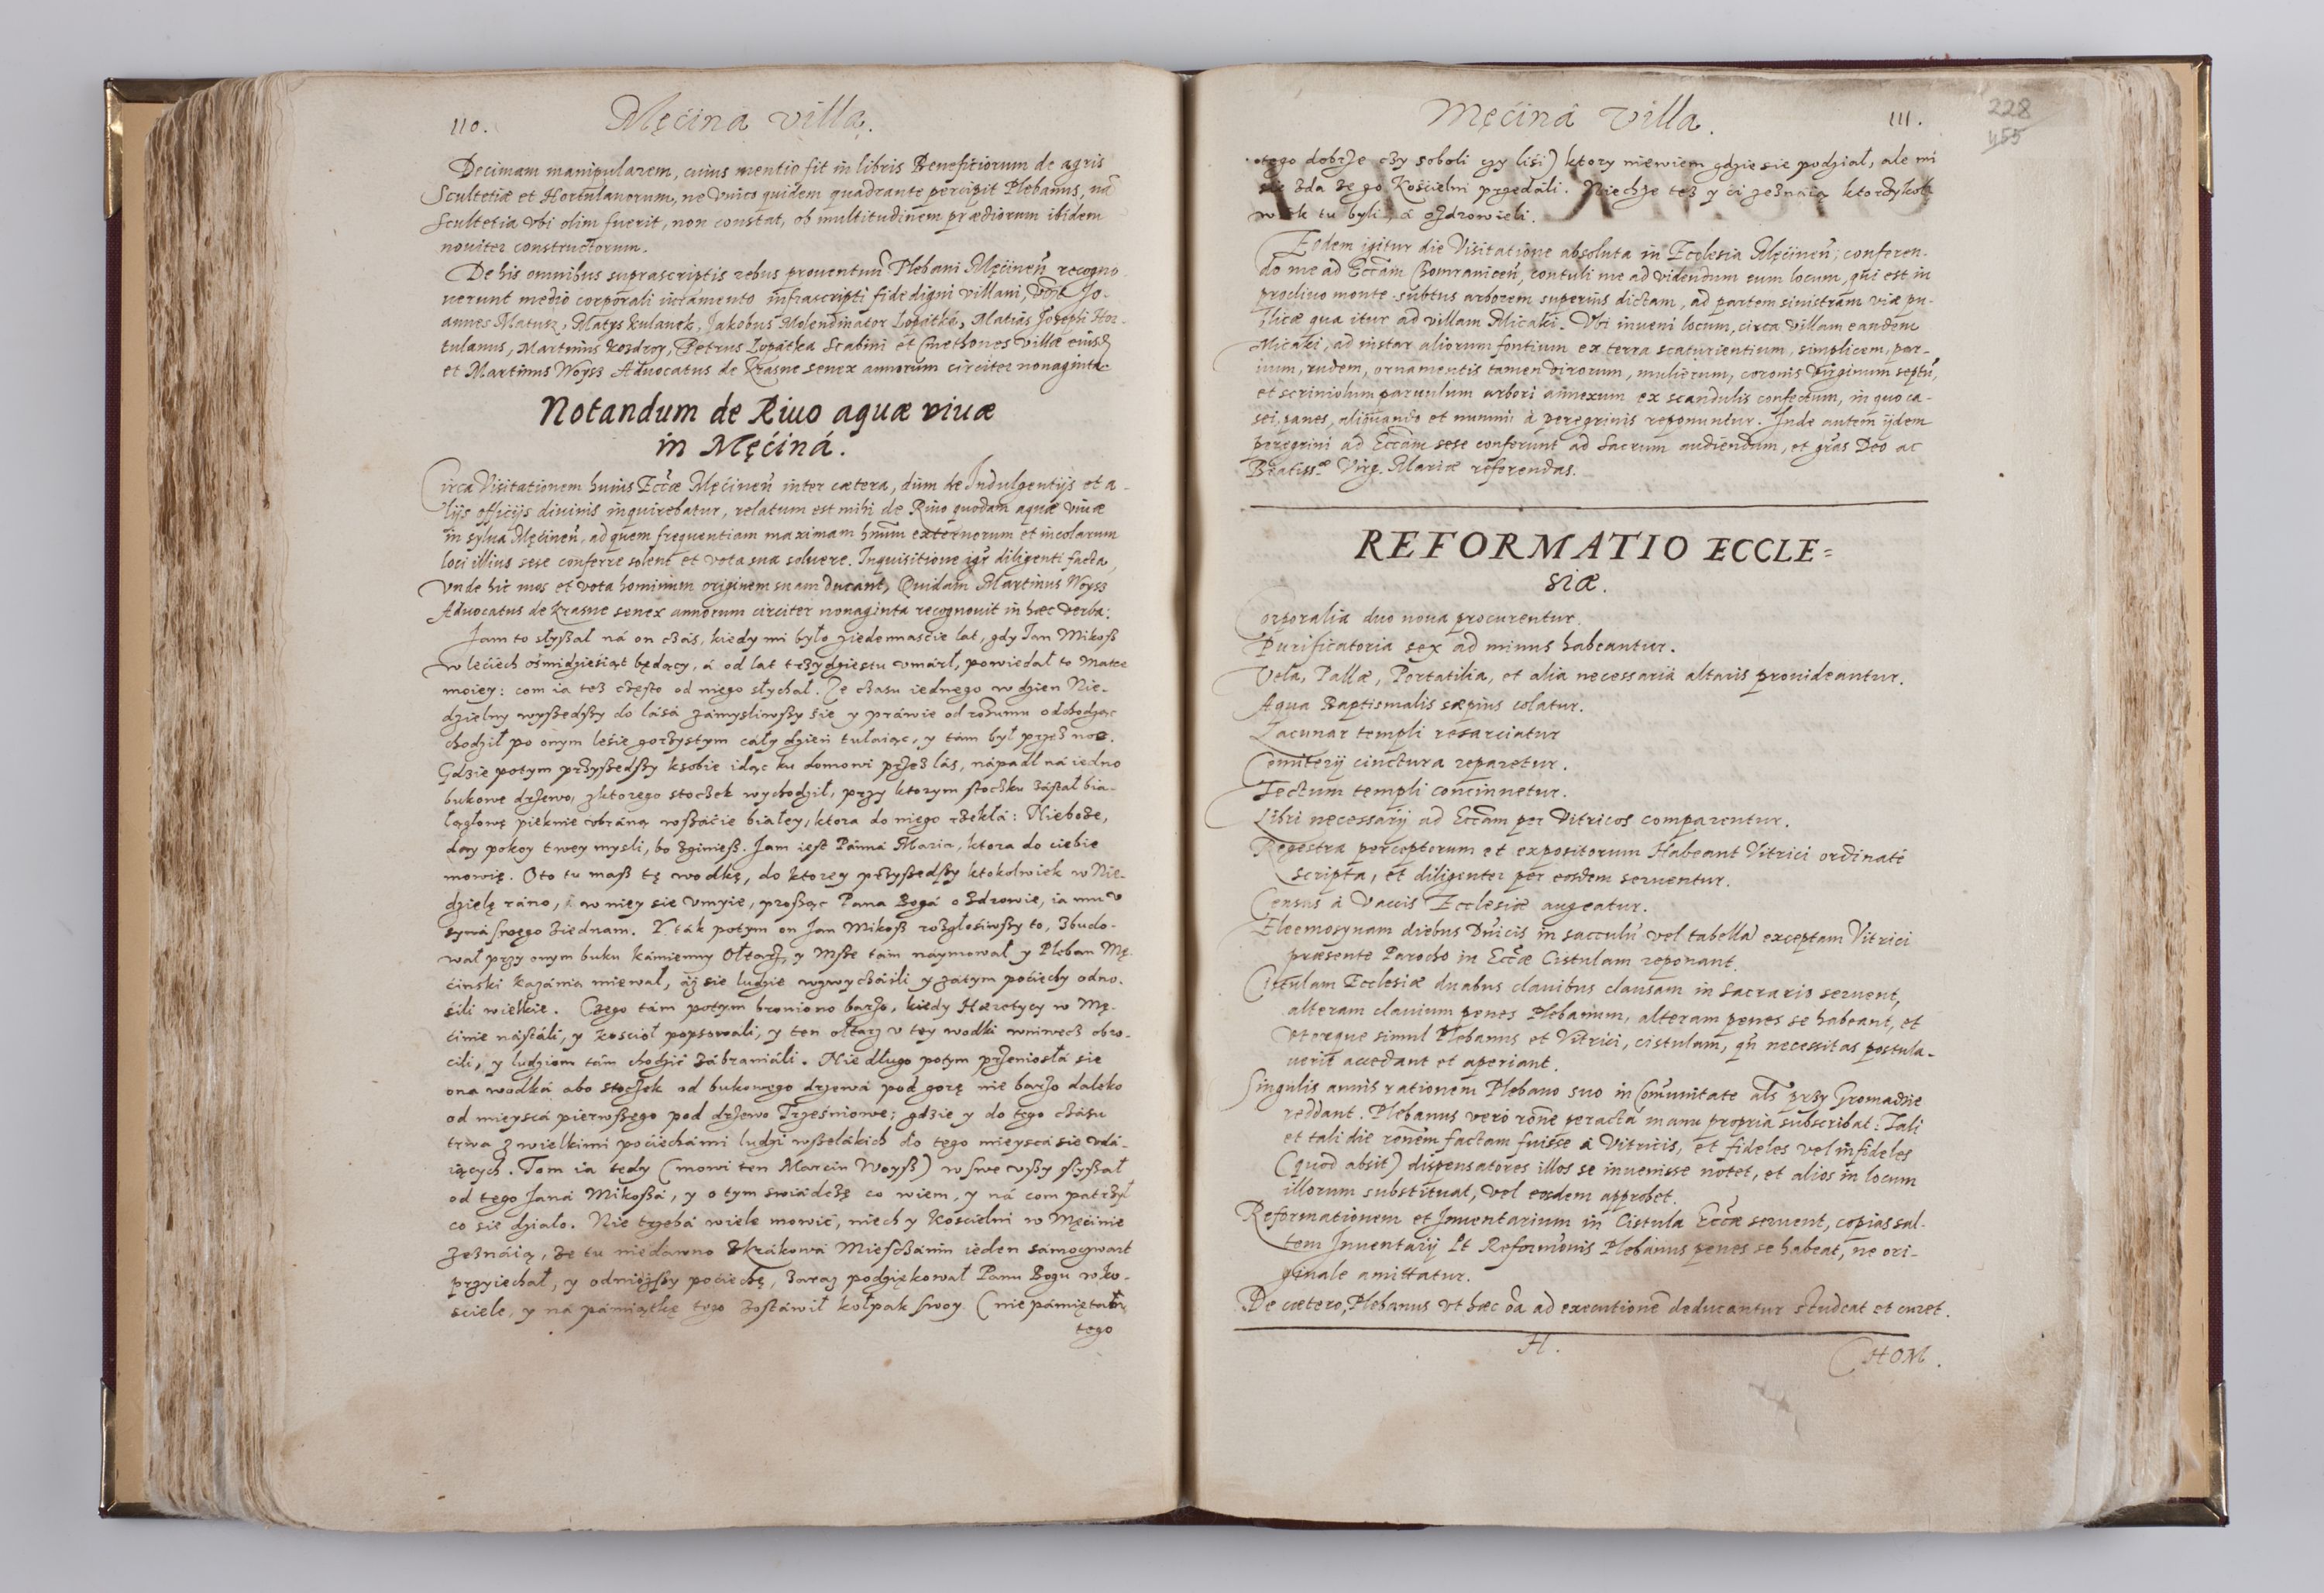 110.
Męćina villa.
Decimam manipularem, cuius mentio fit in libris Beneficiorum de agris
Scultetiæ et Hortulanorum, ne vnico quidem quadrante percipit Plebanus, nā
Scultetia vbi olim fuerit, non constat, ob multitudinem prædiorum ibidem
nouiter constructorum.
De his omnibus suprascriptis rebus prouentuū Plebani Męćineń recogno-
uerunt medio corporali iuramento infrascripti fide digni villani, vdƺt Jo-
annes Matusz, Matys Kulanek, Jakobus Molendinator Łopátká, Matias Josephi Hor-
tulanus, Martinus Kozdroy, Petrus Łopátka Scabini et Cmethones villæ eiusd
et Martinus Woyss Aduocatus de Krasne senex annorum circiter nonaginta
Notandum de Riuo aquæ viuæ
in Męćiná.
Circa Visitationem huius Ecc̃æ Męćineń inter cætera, dum de Indulgentijs et a-
lijs officijs diuinis inquirebatur, relatum est mihi de Riuo quodam aquæ viuæ
in sylua Męćineń, ad quem frequentiam maximam hnūm externorum et incolarum
loci illius sese conferre solent et vota sua soluere. Inquisitione igr̃ diligenti facta,
vnde hic mos et vota hominum originem suam ducant, Quidam Martinus Woyss
Aduocatus de Krasne senex annorum circiter nonaginta recognouit in hæc verba:
Jam to słyßał ná on czás, kiedy mi było ziedennaście lat, gdy Jan Mikoß
w leciech ośmidzieśiąt będący, á od lat trzydziestu vmárł, powiedał to Matce
moiey: com ia też często od niego słychał. Że czasu iednego w dzien Nie-
dzielny wyßedßy do lásá zámysliwßy śie y práwie od rozumu odchodząc
chodził po onym leśie gorzystym cáły dzień tułaiąc, y tám był przez noc.
Gdzie potym przyßedßy ksobie idąc ku domowi przez lás, nápadl ná iedno
bukowe drzewo, z ktorego stoczek wychodził, przy ktorym stoczku zástał bia-
łągłowę pieknie vbráną w ßácie białey, ktora do niego rzekłá: Nieboże,
day pokoy twey mysli, bo zginieß. Jam iest Pánná Maria, ktora do ciebie
mowię. Oto tu maß tę wodkę, do ktorey przyßedßy ktokolwiek w Nie-
dzielę ráno, á w niey sie vmyie, proßąc Pana Bogá o zdrowie, ia mu v
syná swego ziednam. Y ták potym on Jan Mikoß rozgłosiwßy to, zbudo-
wał przy onym buku kámienny Ołtarz, y Mße tám náymował y Pleban Mę-
ćinski kazánia miewał, áż sie ludzie wzwyczáili y zátym pociechy odno-
śili wielkie. Czego tám potym broniono barzo, kiedy Hæretycy w Mę-
ćinie nástáli, y kościoł popsowáli, y ten ołtarz v tey wodki wniwecz obro-
cili, y ludziom tám chodzić zábraniáli. Nie długo potym przeniosłá sie
ona wodká abo stoczek od bukowego drzewá pod gorę nie barzo daleko
od mieyscá pierwßego pod drzewo Trześniowe; gdzie y do tego czásu
trwa z wielkimi pociechámi ludzi wßelákich do tego mieyscá sie vdá-
iących. Tom ia tedy (mowi ten Marcin Woyß) w swe vßy słyßał
od tego Janá Mikoßá, y o tym swiádczę co wiem, y ná com patrzył
co sie działo. Nie trzebá wiele mowić, niech y Kościelni w Męćinie
zeznáią, że tu niedawno z Krákowá Mieszczánin ieden sámoczwart
przyiechał, y odniozßy pociechę, zaraz podziękował Panu Bogu w ko-
ściele, y ná pámiątkę tego zostáwił kołpak swoy. (nie pámiętam
tego
Męćiná Villa.
111.
228
455
tego dobrze czy soboli czy liśi) ktory niewiem gdzie sie podział, ale mi
sie zda że go Kościelni przedáli. Niechże też y ci zeznáią ktorzykol-
wiek tu byli, á ozdrowieli.
Eodem igitur die Visitatione absoluta in Ecclesia Męćineń; conferen-
do me ad Ecc̃am Chomraniceń, contuli me ad videndum eum locum, qui est in
procliuo monte subtus arborem superius dictam, ad partem sinistram viæ pu-
blicæ qua itur ad villam Micaki. Vbi inueni locum, circa villam eandem
Micaki, ad instar aliorum fontium ex terra scaturientium, simplicem, par-
uum, rudem, ornamentis tamen virorum, mulierum, coronis Virginum septū,
et scriniolum paruulum arbori annexum ex scandulis confectum, in quo ca-
sei, panes, aliquando et nummi à peregrinis reponuntur. Inde autem ijdem
peregrini ad Ecc̃am sese conferunt ad Sacrum audiendum, et gr̃as Deo ac
Beatiss.æ Virg. Mariæ referendas.
REFORMATIO ECCLE=
SIÆ.
Corporalia duo noua procurentur.
Purificatoria sex ad minus habeantur.
Vela, Pallæ, Portatilia, et alia necessaria altaris prouideantur.
Aqua Baptismalis sæpius colatur.
Lacunar templi resarciatur
Cœmiterij cinctura reparetur.
Tectum templi concinnetur.
Libri necessarij ad Ecc̃am per Vitricos comparentur.
Regestra perceptorum et expositorum Habeant Vitrici ordinatè
scripta, et diligenter per eosdem seruentur.
Census à vaccis Ecclesiæ augeatur.
Eleemosynam diebus Dn̄icis in sacculū vel tabellā exceptam Vitrici
præsente Parocho in Ecc̃æ Cistulam reponant.
Cistulam Ecclesiæ duabus clauibus clausam in sacrario seruent,
alteram clauium penes Plebanum, alteram penes se habeant, et
vterque simul Plebanus et Vitrici, cistulam, qn̄ necessitas postula-
uerit accedant et aperiant.
Singulis annis rationem Plebano suo in Com̃unitate als̃ przy Gromadzie
reddant. Plebanus verò rōne peracta manu propria subscribat: Tali
et tali die rōnem factam fuisse à Vitricis, et fideles vel infideles
(quod absit) dispensatores illos se inuenisse notet, et alios in locum
illorum substituat, vel eosdem approbet.
Reformationem et Inuentarium in Cistula Ecc̃æ seruent, copias sal-
tem Inuentarij Et Reformōnis Plebanus penes se habeat, ne ori-
ginale amittatur.
De cætero, Plebanus vt hæc ōia ad executionē deducantur studeat et curet.
H.
CHOM.